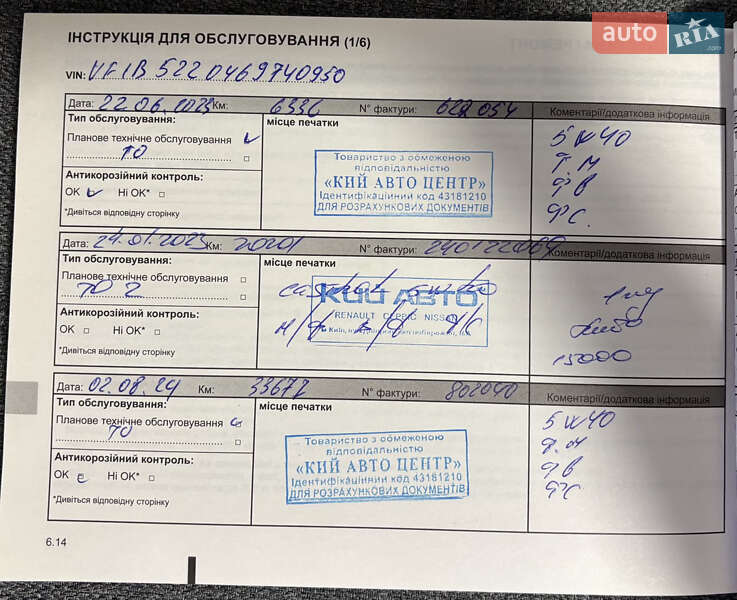 auto RIA .com
ІНСТРУКЦІЯ ДЛЯ ОБСЛУГОВУВАННЯ (1/6)
VIN: VF1B5220469740950
Дата: 22.06.2023 Км: 6336 № фактури: 054 Коментарії/додаткова інформація
Тип обслуговування:
Планове технічне обслуговування
ТО
Антикорозійний контроль:
ОК Ні ОК*
*Дивіться відповідну сторінку
місце печатки
Товариство з обмеженою
відповідальністю
«КИЙ АВТО ЦЕНТР»
Ідентифікаційний код 43181210
ДЛЯ РОЗРАХУНКОВИХ ДОКУМЕНТІВ
5W40
ф.м
фв
фс.
Дата: 24.01.2023 Км: 20201 № фактури: Коментарії/додаткова інформація
Тип обслуговування:
Планове технічне обслуговування
ТО 2
Антикорозійний контроль:
ОК Ні ОК*
*Дивіться відповідну сторінку
місце печатки
КИЙ АВТО
RENAULT СЕРВІС NISSAN
м/ф в/ф ф/с
15000
Дата: 02.08.24 Км: 33672 № фактури: 802040 Коментарії/додаткова інформація
Тип обслуговування:
Планове технічне обслуговування
ТО
Антикорозійний контроль:
ОК Ні ОК*
*Дивіться відповідну сторінку
місце печатки
Товариство з обмеженою
відповідальністю
«КИЙ АВТО ЦЕНТР»
Ідентифікаційний код 43181210
ДЛЯ РОЗРАХУНКОВИХ ДОКУМЕНТІВ
5W40
ф.м
фв
фс
6.14